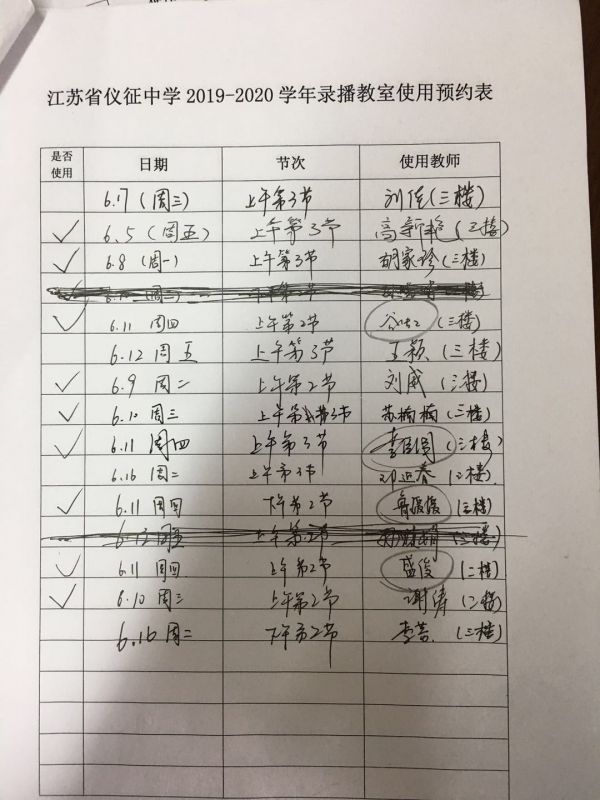 江苏省仪征中学2019-2020学年录播教室使用预约表
是否使用 日期 节次 使用教师
6.17（周三） 上午第3节 刘佳（三楼）
6.5（周五） 上午第3节 高新艳（三楼）
6.8（周一） 上午第3节 胡家珍（三楼）
6.11 周四 上午第2节 （三楼）
6.12 周五 上午第3节 王颖（三楼）
6.9 周二 上午第2节 刘威（三楼）
6.10 周三 上午第3节 苏楠楠（三楼）
6.11 周四 上午第3节 （三楼）
6.16 周二 上午第3节 邓迎春（二楼）
6.11 周四 下午第2节 （三楼）
6.12 周五 上午第2节 （三楼）
6.11 周四 上午第2节 盛俊（二楼）
6.10 周三 上午第2节 谢倩（二楼）
6.16 周二 下午第2节 （三楼）